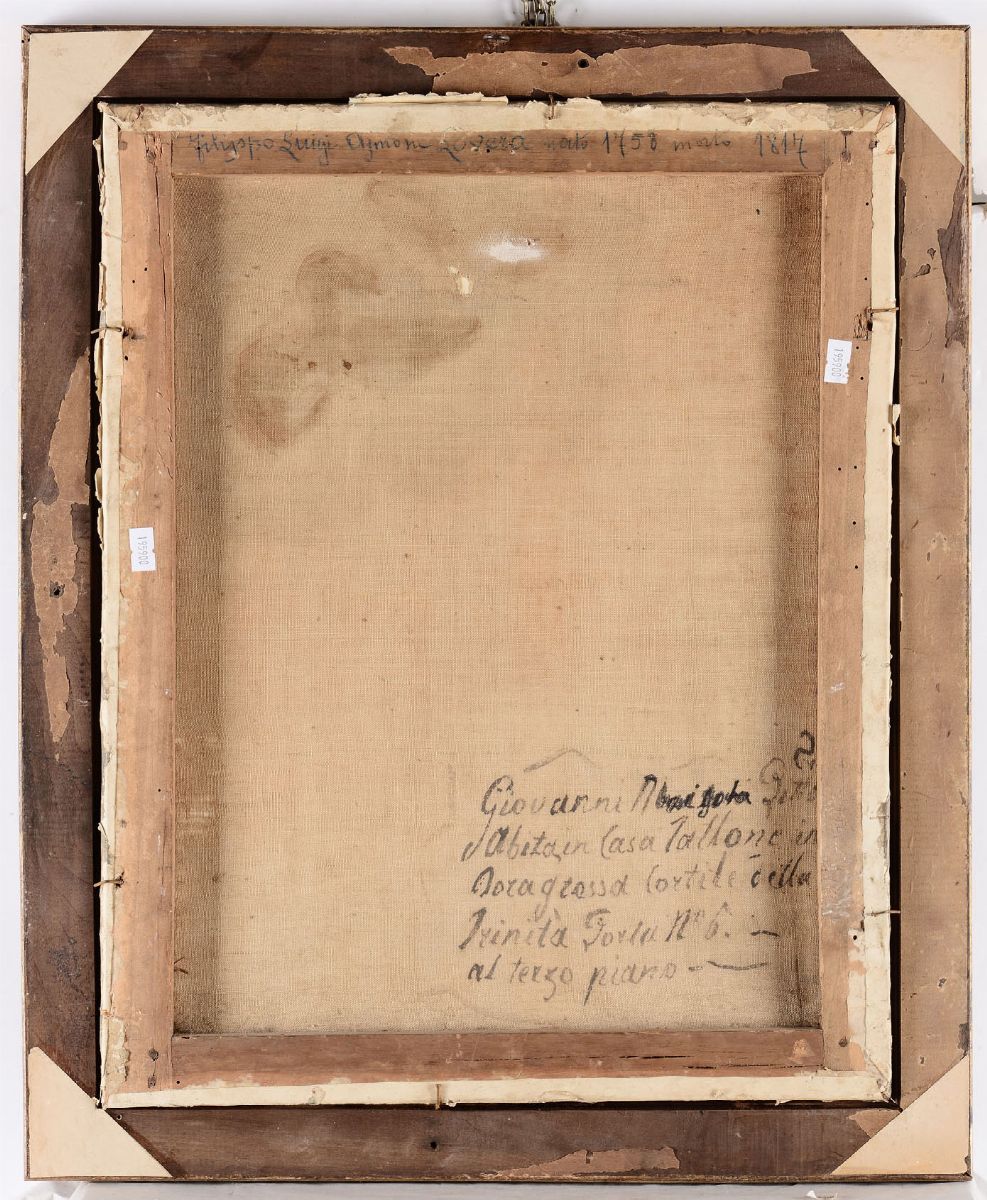 Filippo Luigi Aymone Lovera nato 1758 morto 1817
195900
195900
Giovanni
Abita in Casa Tallone in
Doragrossa Cortile della
Trinità Porta N° 6. —
al terzo piano —